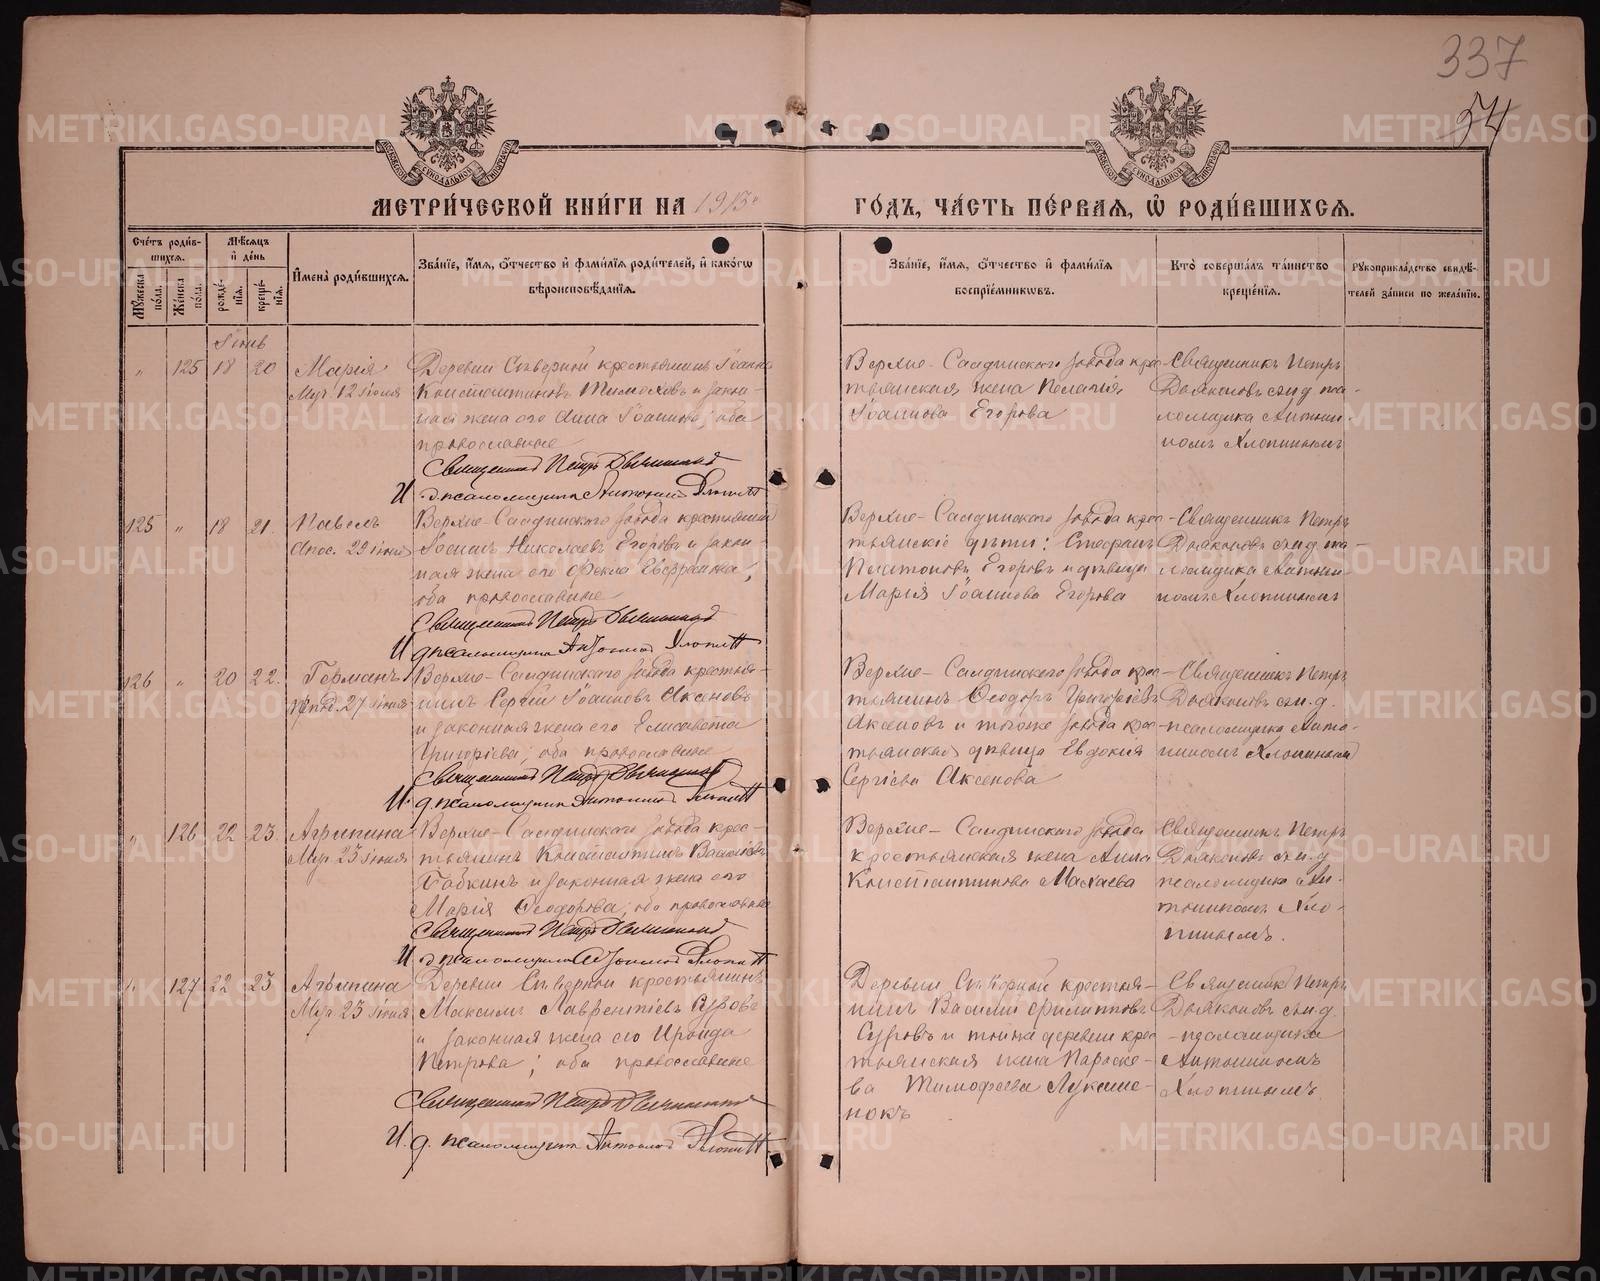 337
54
МЕТРИ́ЧЕСКОЙ КНИ́ГИ НА 1913 ГО́ДЪ, ЧА́СТЬ ПЕ́РВАЯ, Ѡ РОДИ́ВШИХСЯ.
Сче́тъ роди́вшихся.
Мѣ́сяцъ и де́нь
Му́жеска по́ла.
Же́нска по́ла.
рожде́нїя.
креще́нїя.
И҆мена̀ роди́вшихся.
Зва́нїе, и҆́мя, ѻ҆́тчество и҆ фами́лїя роди́телей, и҆ како́гѡ вѣроисповѣ́данїя.
Зва́нїе, и҆́мя, ѻ҆́тчество и҆ фами́лїя воспрїе́мникѡвъ.
Кто̀ соверша́лъ та́инство креще́нїя.
Рукоприкла́дство свидѣ́телей за́писи по жела́нїю.
Іюнь
" 125 18 20
Марія
Муч. 12 іюля
Деревни Сѣверной крестьянинъ Іоаннъ
Константиновъ Тимоховъ и закон-
ная жена его Анна Іоаннова, оба
православные
Священникъ Петръ Дьяконовъ
И. д. псаломщика Антоній Хлопинъ
Верхне-Салдинскаго завода крес-
тьянская жена Пелагія
Іоаннова Егорова
Священникъ Петръ
Дьяконовъ съ и. д. пса-
ломщика Антони-
номъ Хлопинымъ
125 " 18 21.
Павелъ
Апос. 29 іюня
Верхне-Салдинскаго завода крестьянинъ
Іоаннъ Николаевъ Егоровъ и закон-
ная жена его Ѳекла Евфремова,
оба православные
Священникъ Петръ Дьяконовъ
И. д. псаломщика Антоній Хлопинъ
Верхне-Салдинскаго завода крес-
тьянскіе дѣти: Стефанъ
Платоновъ Егоровъ и дѣвица
Марія Іоаннова Егорова
Священникъ Петръ
Дьяконовъ съ и. д. пса-
ломщика Антони-
номъ Хлопинымъ
126 " 20 22.
Германъ
Препод. 27 іюня
Верхне-Салдинскаго завода крестья-
нинъ Сергій Іоанновъ Аксеновъ
и законная жена его Елисавета
Григоріева, оба православные
Священникъ Петръ Дьяконовъ
И. д. псаломщика Антоній Хлопинъ
Верхне-Салдинскаго завода крес-
тьянинъ Ѳеодоръ Григоріевъ
Аксеновъ и тогоже завода крес-
тьянская дѣвица Евдокія
Сергіева Аксенова
Священникъ Петръ
Дьяконовъ съ и. д.
псаломщика Анто-
ниномъ Хлопинымъ
" 126 22 23.
Агрипина
Муч. 23 іюня
Верхне-Салдинскаго завода крес-
тьянинъ Константинъ Василіевъ
Бабкинъ и законная жена его
Марія Ѳеодорова, оба православные
Священникъ Петръ Дьяконовъ
И. д. псаломщика Антоній Хлопинъ
Верхне-Салдинскаго завода
крестьянская жена Анна
Константинова
Священникъ Петръ
Дьяконовъ съ и. д.
псаломщика Ан-
тониномъ Хло-
пинымъ.
" 127 22 23
Агрипина
Муч. 23 іюня
Деревни Сѣверной крестьянинъ
Максимъ Лаврентіевъ Суровъ
и законная жена его Ираида
Петрова; оба православные
Священникъ Петръ Дьяконовъ
И. д. псаломщика Антоній Хлопинъ
Деревни Сѣверной крестья-
нинъ Василій Филипповъ
Суровъ и тойже деревни крес-
тьянская жена Параске-
ва Тимофеева Лукаше-
нокъ
Священникъ Петръ
Дьяконовъ съ и. д.
псаломщика
Антониномъ
Хлопинымъ.
METRIKI.GASO-URAL.RU